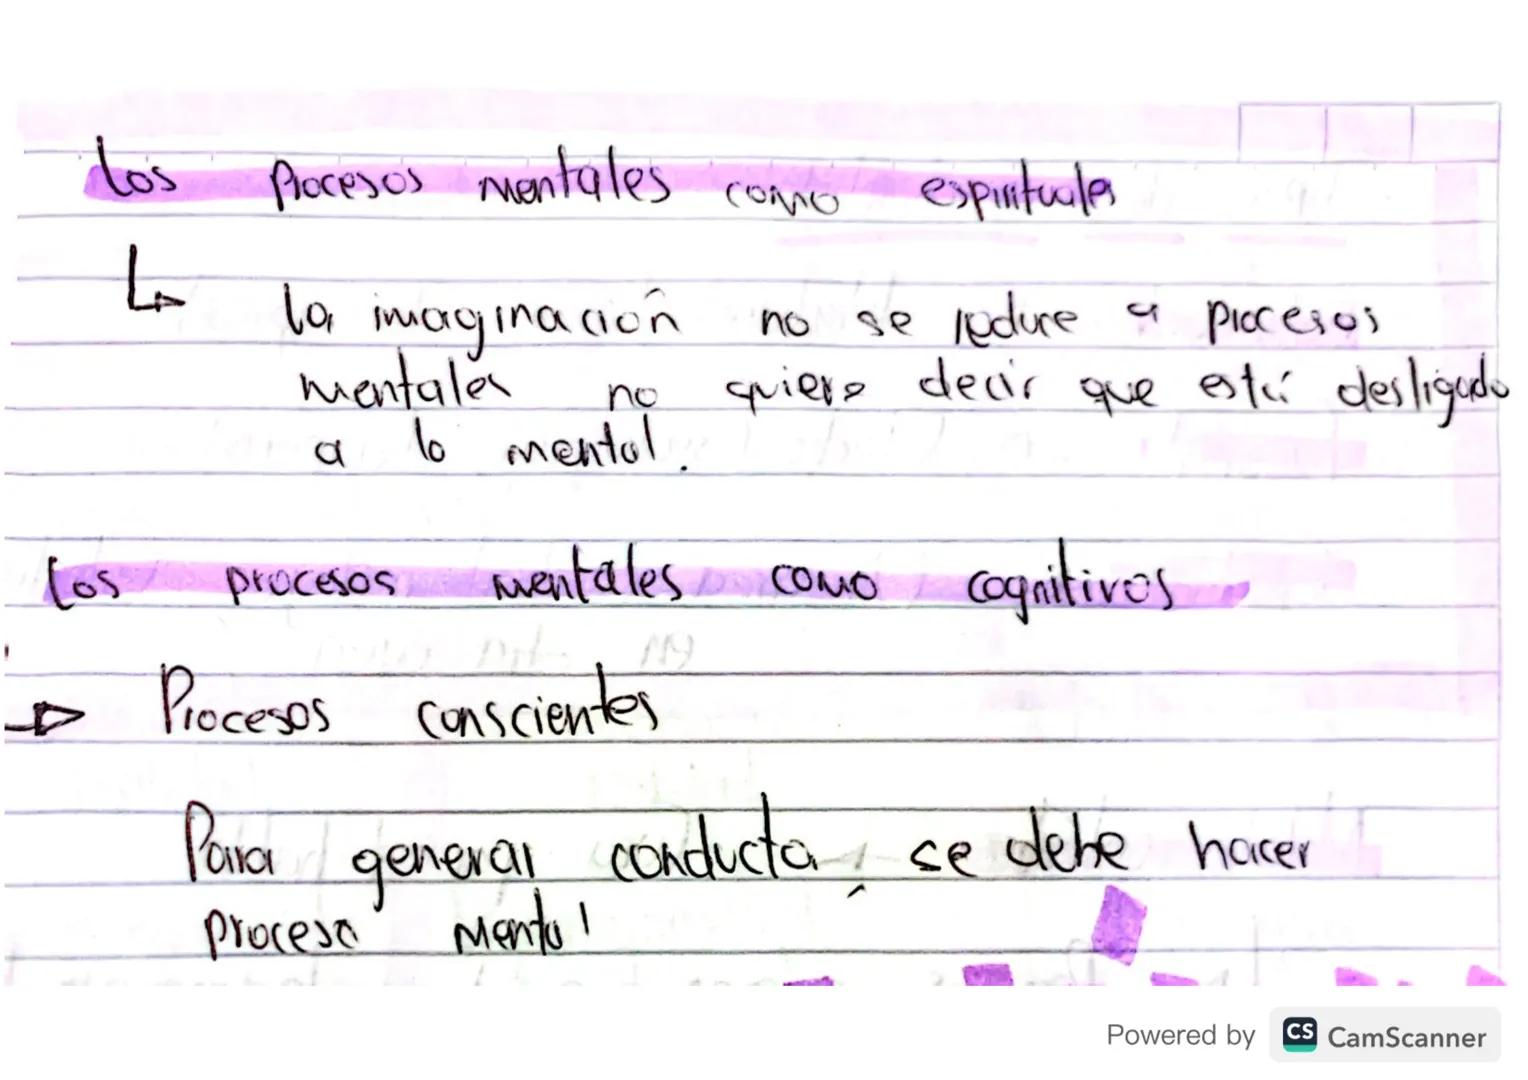 Los procesos mentales como espirituales
la imaginación no se reduce a procesos
mentales no quiere decir que está desligado
a lo mental.
Los procesos mentales como cognitivos
Procesos conscientes
Para generar conducta, se debe hacer
proceso mental
Powered by CS CamScanner